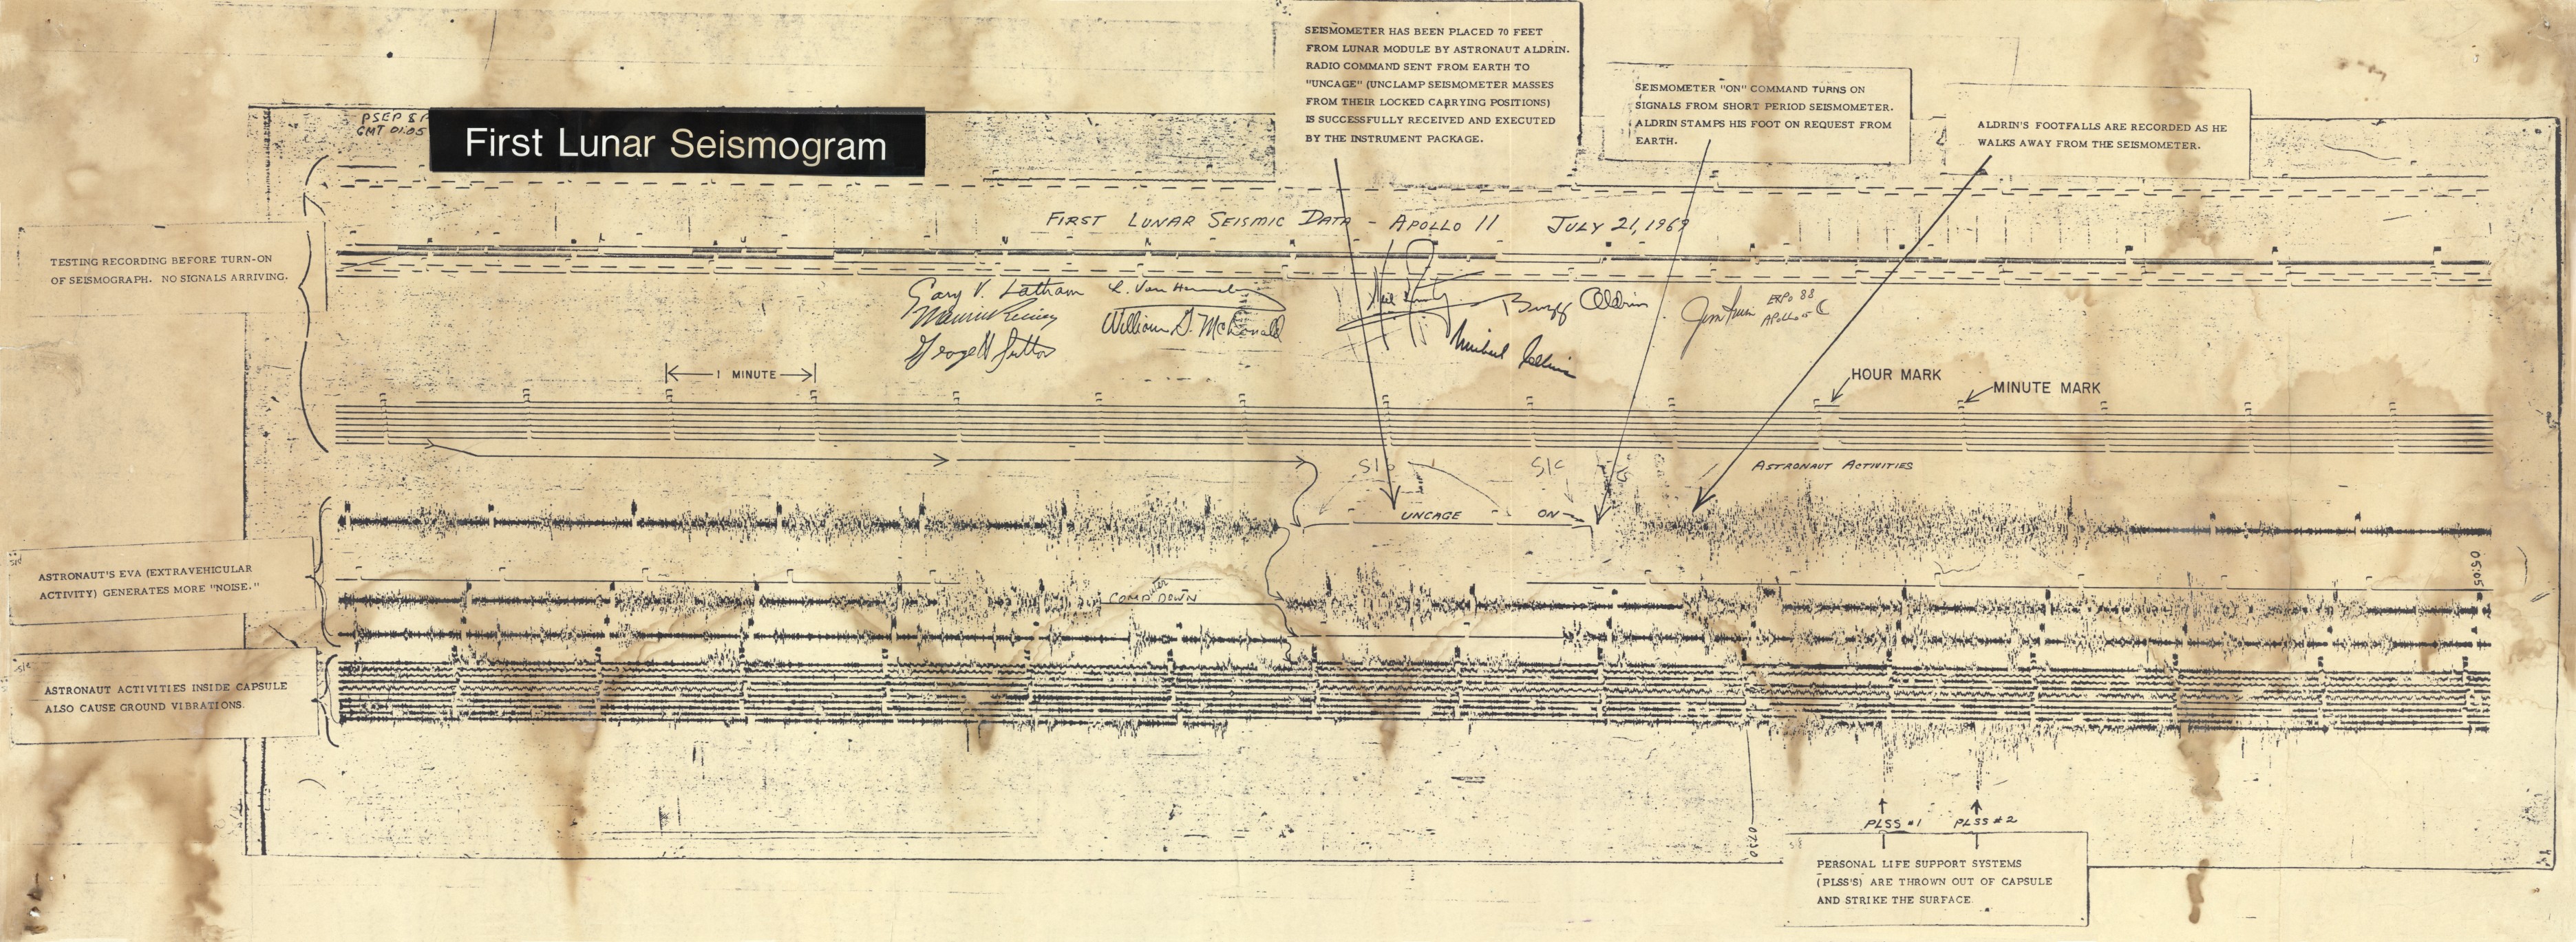 SEISMOMETER HAS BEEN PLACED 70 FEET
FROM LUNAR MODULE BY ASTRONAUT ALDRIN.
RADIO COMMAND SENT FROM EARTH TO
"UNCAGE" (UNCLAMP SEISMOMETER MASSES
FROM THEIR LOCKED CARRYING POSITIONS)
IS SUCCESSFULLY RECEIVED AND EXECUTED
BY THE INSTRUMENT PACKAGE.
SEISMOMETER "ON" COMMAND TURNS ON
SIGNALS FROM SHORT PERIOD SEISMOMETER.
ALDRIN STAMPS HIS FOOT ON REQUEST FROM
EARTH.
ALDRIN'S FOOTFALLS ARE RECORDED AS HE
WALKS AWAY FROM THE SEISMOMETER.
PSEP
GMT 01:05
First Lunar Seismogram
FIRST LUNAR SEISMIC DATA - APOLLO 11 JULY 21, 1969
TESTING RECORDING BEFORE TURN-ON
OF SEISMOGRAPH. NO SIGNALS ARRIVING.
Gary V. Latham
William D. McDonald
Buzz Aldrin
Jim Irwin
EXPO 88
Michael Collins
1 MINUTE
HOUR MARK
MINUTE MARK
S/C
ASTRONAUT ACTIVITIES
UNCAGE
ON
05:05
ASTRONAUT'S EVA (EXTRAVEHICULAR
ACTIVITY) GENERATES MORE "NOISE."
COMP'TER DOWN
ASTRONAUT ACTIVITIES INSIDE CAPSULE
ALSO CAUSE GROUND VIBRATIONS.
PLSS #1 PLSS #2
0730
PERSONAL LIFE SUPPORT SYSTEMS
(PLSS'S) ARE THROWN OUT OF CAPSULE
AND STRIKE THE SURFACE.